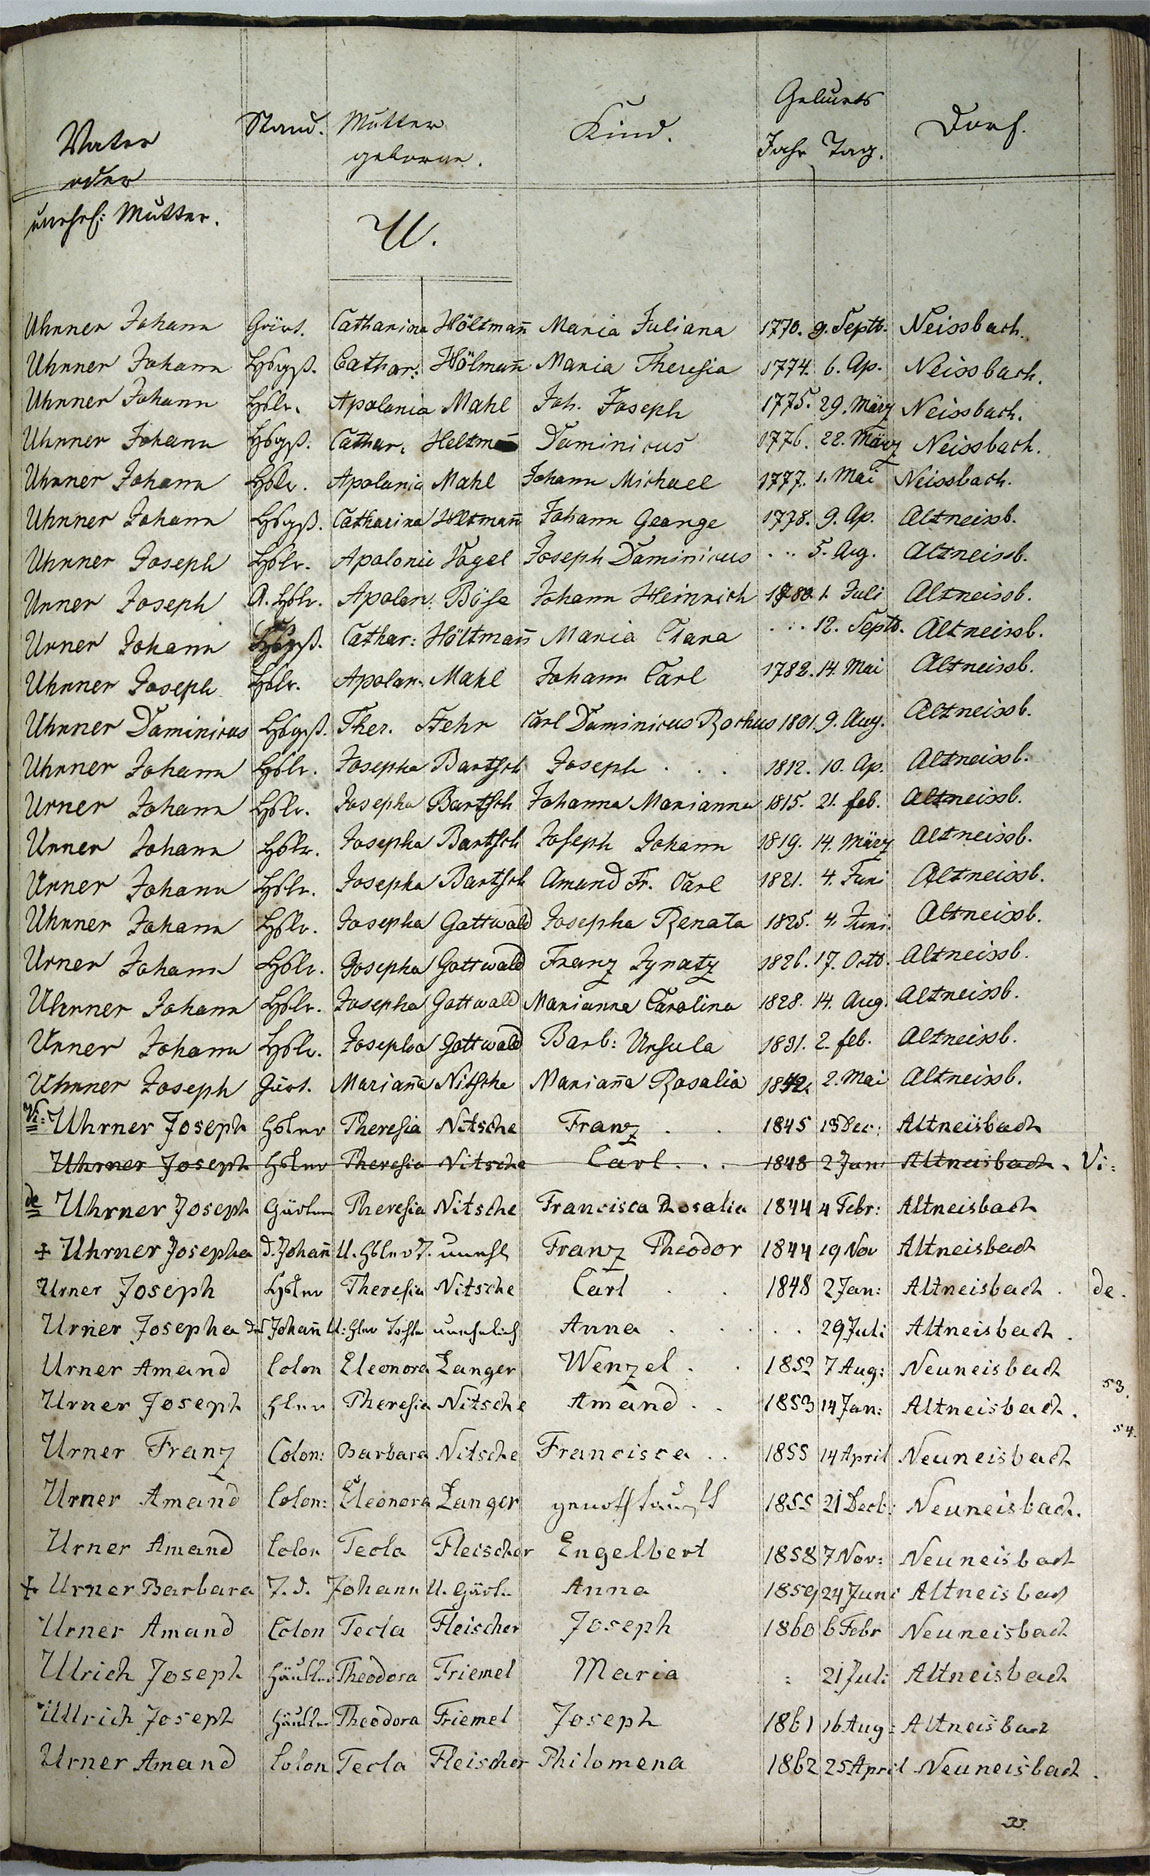 Vater oder unehel: Mutter. Stand. Mutter geborne. Kind. Geburts Jahr Tag. Dorf.
U.
Uhrner Johann Gärt. Catharina Höltmañ Maria Juliana 1770. 9. Septb. Neissbach.
Uhrner Johann Cathar: Hölmañ Maria Theresia 1774. 6. Ap. Neissbach.
Uhrner Johann Hslr. Apolonia Mahl Joh. Joseph 1775. 29. März Neissbach.
Uhrner Johann Cathar: Dominicus 1776. 22. März Neissbach.
Uhrner Johann Hslr. Apolonia Mahl Johann Michael 1777. 1. Mai Neissbach.
Uhrner Johann Catharina Höltmañ Johann George 1778. 9. Ap. Altneissb.
Uhrner Joseph Hslr. Apolonia Vogel Joseph Dominicus . . . 5. Aug. Altneissb.
Urner Joseph A. Hslr. Apolon: Böse Johann Heinrich 1780. 1. Juli Altneissb.
Urner Johann Cathar: Höltmañ Maria Clara . . . 12. Septb. Altneissb.
Uhrner Joseph Hslr. Apolon: Mahl Johann Carl 1782. 14. Mai Altneissb.
Uhrner Dominicus Ther. Stehr Carl Dominicus Rochus 1801. 9. Aug. Altneissb.
Uhrner Johann Hslr. Josepha Bartsch Joseph . . . 1812. 10. Ap. Altneissb.
Urner Johann Hslr. Josepha Bartsch Johanna Marianna 1815. 21. feb. Altneissb.
Urner Johann Hslr. Josepha Bartsch Joseph Johann 1819. 14. März Altneissb.
Urner Johann Hslr. Josepha Bartsch Amand Fr. Carl 1821. 4. Juni Altneissb.
Uhrner Johann Hslr. Josepha Gottwald Josepha Renata 1825. 4. Juni. Altneissb.
Urner Johann Hslr. Josepha Gottwald Franz Ignatz 1826. 17. Octb. Altneissb.
Uhrner Johann Hslr. Josepha Gottwald Marianna Carolina 1828. 14. Aug. Altneissb.
Urner Johann Hslr. Josepha Gottwald Barb: Ursula 1831. 2. feb. Altneissb.
Uhrner Joseph Gärt. Mariaña Nitsche Mariaña Rosalia 1842. 2. Mai Altneissb.
Vi: Uhrner Joseph Hslner Theresia Nitsche Franz . . 1845 Dec: Altneisbach
Uhrner Joseph Hslner Theresia Nitsche Carl . . . 1848 2 Jan: Altneisbach . Vi:
de Uhrner Joseph Gärtner Theresia Nitsche Francisca Rosalia 1844 4 Febr: Altneisbach
+ Uhrner Josepha d. Johañ U. Hslner T. unehl Franz Theodor 1844 19 Nov Altneisbach
Urner Joseph Hslner Theresia Nitsche Carl . . 1848 2 Jan: Altneisbach . de.
Urner Josepha des Johañ U: Hslner Tochter unehelich Anna . . . . . 29 Juli Altneisbach .
Urner Amand Colon Eleonora Langer Wenzel . . 1852 7 Aug: Neuneisbach
53.
Urner Joseph Hsler Theresia Nitsche Amand . . 1853 14 Jan: Altneisbach .
54.
Urner Franz Colon: Barbara Nitsche Francisca . . 1855 14 April Neuneisbach
Urner Amand Colon: Eleonora Langer genothtauft 1855 21 Decb: Neuneisbach.
Urner Amand Colon Tecla Fleischer Engelbert 1858 7 Nov: Neuneisbach
+ Urner Barbara T. d. Johann U. Gärtn. Anna 1859 24 Juni Altneisbach
Urner Amand Colon Tecla Fleischer Joseph 1860 6 Febr Neuneisbach
Ulrich Joseph Häusler Theodora Friemel Maria : 21 Juli Altneisbach
Ullrich Joseph Häusler Theodora Friemel Joseph 1861 16 Aug: Altneisbach
Urner Amand Colon Tecla Fleischer Philomena 1862 25 April Neuneisbach .
33.